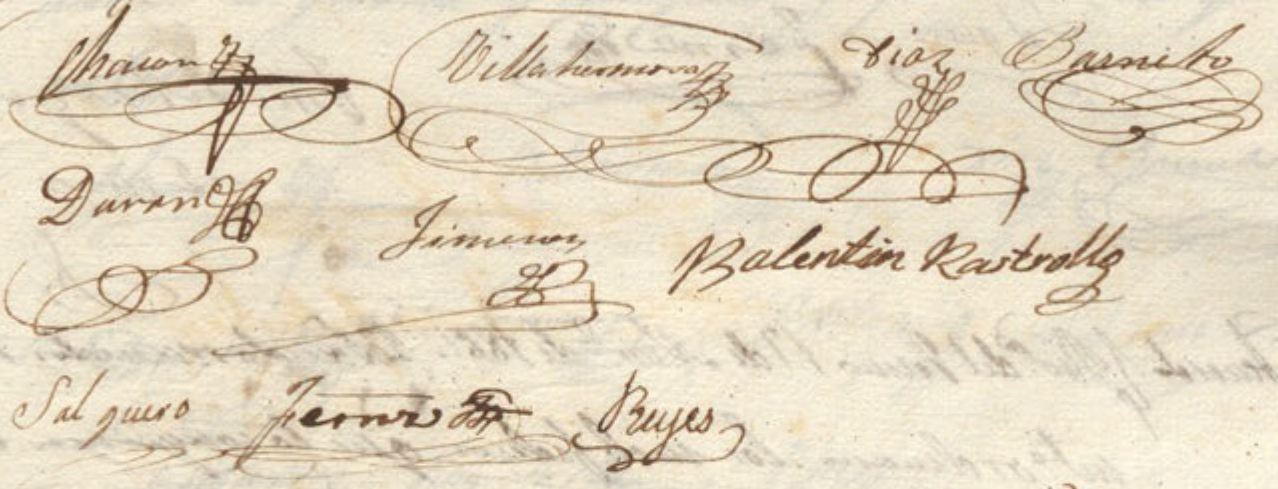 Chacon Villahermosa Diaz Barnito
Duran Jimenez Balentin Rastrollo
Salguero Reyes